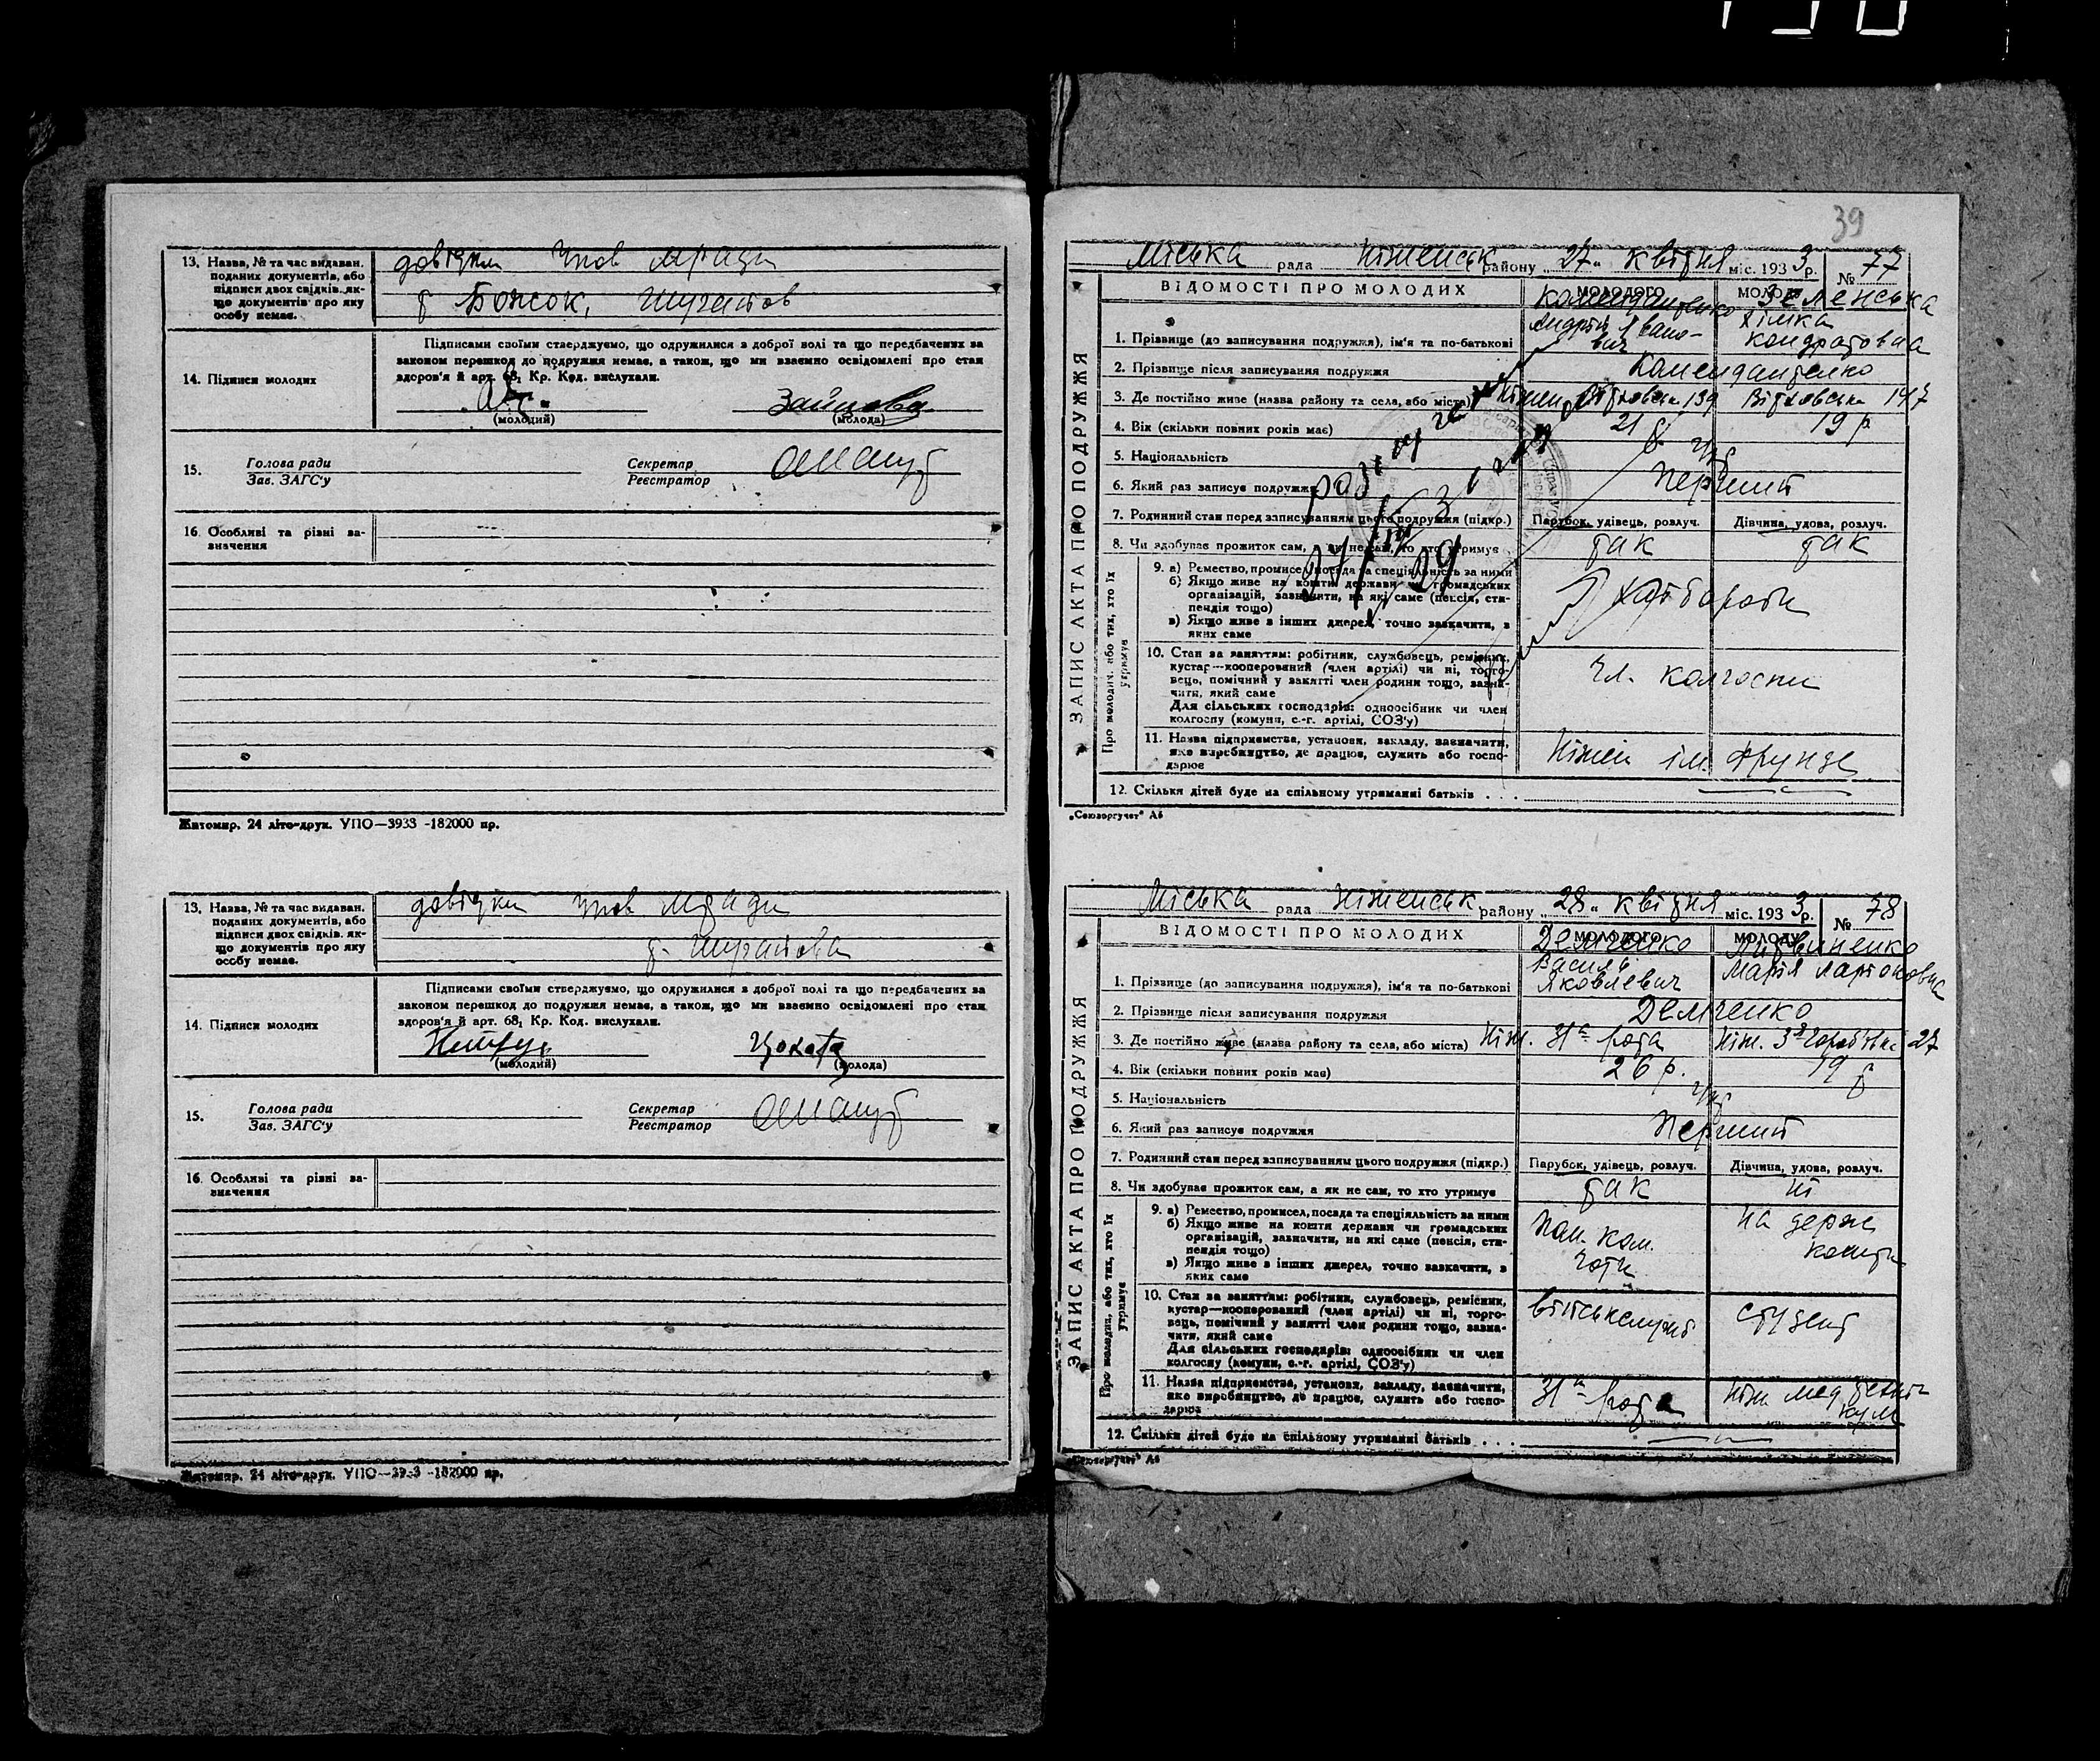 13. Назва, № та час видаван. поданих документів, або підписи двох свідків, як-що документів про яку особу немає.
довідки
т Божок,
Підписами своїми стверджуємо, що одружилися з доброї волі та що передбачених за
законом перешкод до подружжя немає, а також, що ми взаємно освідомлені про стан
здоров'я й арт. 68₁ Кр. Код. вислухали.
14. Підписи молодих
Зайцова
(молодий) (молода)
15. Голова ради Секретар
Зав. ЗАГС'у Реєстратор
16. Особливі та різні за-
значення
Житомир. 24 літо-друк. УПО—3933 -182000 пр.
13. Назва, № та час видаван. поданих документів, або підписи двох свідків, як-що документів про яку особу немає.
довідки
Підписами своїми стверджуємо, що одружилися з доброї волі та що передбачених за
законом перешкод до подружжя немає, а також, що ми взаємно освідомлені про стан
здоров'я й арт. 68₁ Кр. Код. вислухали.
14. Підписи молодих
(молодий) (молода)
15. Голова ради Секретар
Зав. ЗАГС'у Реєстратор
16. Особливі та різні за-
значення
Житомир. 24 літо-друк. УПО—3933 -182000 пр.
39
ЗАПИС АКТА ПРО ПОДРУЖЖЯ
Міська рада Ніженськ району „27“ квітня міс. 1933 р. № 77
ВІДОМОСТІ ПРО МОЛОДИХ МОЛОДОГО МОЛОДУ
Комендантенко Зеленська
Андрій Івано-вич Хімка Кондратовна
1. Прізвище (до записування подружжя), ім'я та по-батькові
2. Прізвище після записування подружжя Комендантенко
3. Де постійно живе (назва району та села, або міста) Ніжен 139 147
4. Вік (скільки повних років має) 21 р 19 р
5. Національність укр
6. Який раз записує подружжя перший
7. Родинний стан перед записуванням цього подружжя (підкр.) Парубок, удівець, розлуч. Дівчина, удова, розлуч.
8. Чи здобуває прожиток сам, а як не сам, то хто утримує так так
Про молодих, або тих, хто їх утримує
9. а) Ремество, промисел, посада та спеціяльність за ними
б) Якщо живе на кошти держави чи громадських
організацій, зазначити, на які саме (пенсія, сти-
пендія тощо)
в) Якщо живе з інших джерел, точно зазначити, з
яких саме
хлібороби
10. Стан за заняттям: робітник, службовець, ремісник,
кустар—кооперований (член артілі) чи ні, торго-
вець, помічний у занятті член родини тощо, зазна-
чити, який саме
Для сільських господарів: одноосібник чи член
колгоспу (комуни, с.-г. артілі, СОЗ'у)
чл. колгоспи
11. Назва підприємства, установи, закладу, зазначити,
яке виробництво, де працює, служить або госпо-
дарює
Ніжен ім. Фрунзе
12. Скільки дітей буде на спільному утриманні батьків . . .
„Союзоргучет“ А5
ЗАПИС АКТА ПРО ПОДРУЖЖЯ
Міська рада Ніженськ району „28“ квітня міс. 1933 р. № 78
ВІДОМОСТІ ПРО МОЛОДИХ МОЛОДОГО МОЛОДУ
Демченко Литвиненко
Василь Яковлевич Марія
1. Прізвище (до записування подружжя), ім'я та по-батькові
2. Прізвище після записування подружжя Демченко
3. Де постійно живе (назва району та села, або міста) Ніж. 31а рота Ніж. 27
4. Вік (скільки повних років має) 26 р. 19 р
5. Національність укр
6. Який раз записує подружжя перший
7. Родинний стан перед записуванням цього подружжя (підкр.) Парубок, удівець, розлуч. Дівчина, удова, розлуч.
8. Чи здобуває прожиток сам, а як не сам, то хто утримує так ні
Про молодих, або тих, хто їх утримує
9. а) Ремество, промисел, посада та спеціяльність за ними
б) Якщо живе на кошти держави чи громадських
організацій, зазначити, на які саме (пенсія, сти-
пендія тощо)
в) Якщо живе з інших джерел, точно зазначити, з
яких саме
Пом. ком. чоти на держ кошти
10. Стан за заняттям: робітник, службовець, ремісник,
кустар—кооперований (член артілі) чи ні, торго-
вець, помічний у занятті член родини тощо, зазна-
чити, який саме
Для сільських господарів: одноосібник чи член
колгоспу (комуни, с.-г. артілі, СОЗ'у)
військслужб студент
11. Назва підприємства, установи, закладу, зазначити,
яке виробництво, де працює, служить або госпо-
дарює
31а рота Ніж мед технікум
12. Скільки дітей буде на спільному утриманні батьків . . .
„Союзоргучет“ А5